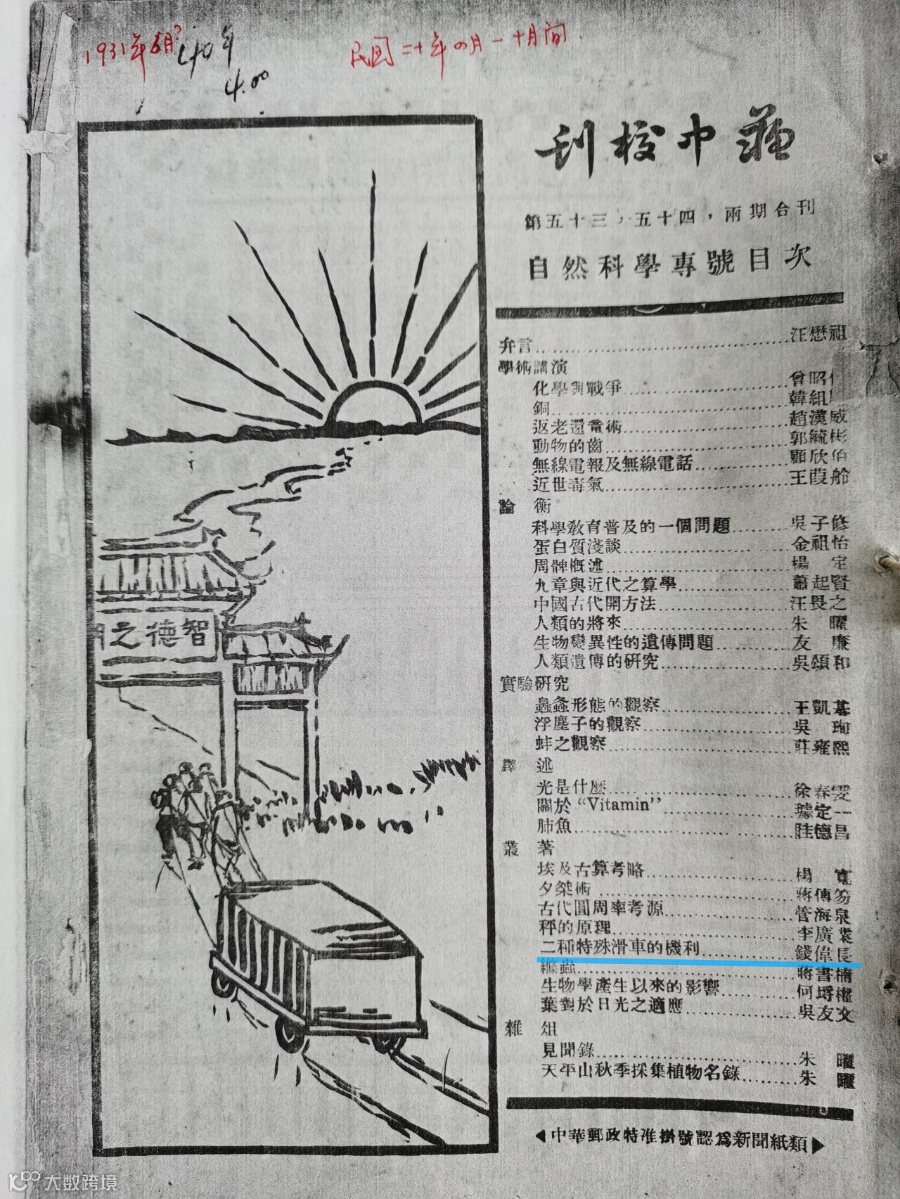 1931年6月?
40年
4.00
民国二十年四月—十月间
刊校中蘇
第五十三，五十四，兩期合刊
自然科學專號目次
弁言 汪懋祖
學術講演
化學與戰爭 曾昭
銅 韓組
返老還童術 趙漢威
動物的齒 郭毓彬
無線電報及無線電話 顧欣伯
近世毒氣 王葭舲
論 衡
科學教育普及的一個問題 吳子修
蛋白質淺談 金祖怡
周髀概述 楊 定
九章與近代之算學 蕭起賢
中國古代開方法 汪畏之
人類的將來 朱 曜
生物變異性的遺傳問題 友 廉
人類遺傳的研究 吳頌和
實驗研究
蟲形態的觀察 王凱基
浮塵子的觀察 吳 珣
蚌之觀察 莊雍熙
譯 述
光是什麼 徐春雯
關於“Vitamin” 璩定一
肺魚 陸德昌
叢 著
埃及古算考略 楊 寬
夕桀術 蔣傳笏
古代圓周率考源 管海泉
秤的原理 李廣業
二種特殊滑車的機利 錢偉長
蟲 蔣書楠
生物學產生以來的影響 何
葉對於日光之適應 吳友文
雜 俎
見聞錄 朱 曜
天平山秋季採集植物名錄 朱 曜
◀中華郵政特准掛號認爲新聞紙類▶
智德之門
大数跨境